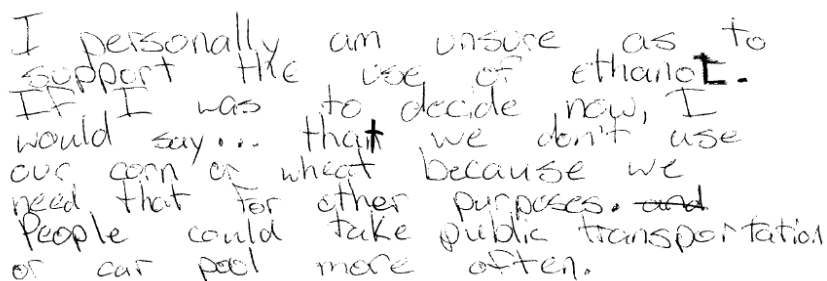 I personally am unsure as to
support the use of ethanol.
If I was to decide now, I
would say... that we don't use
our corn or wheat because we
need that for other purposes. and
People could take public transportation
or car pool more often.